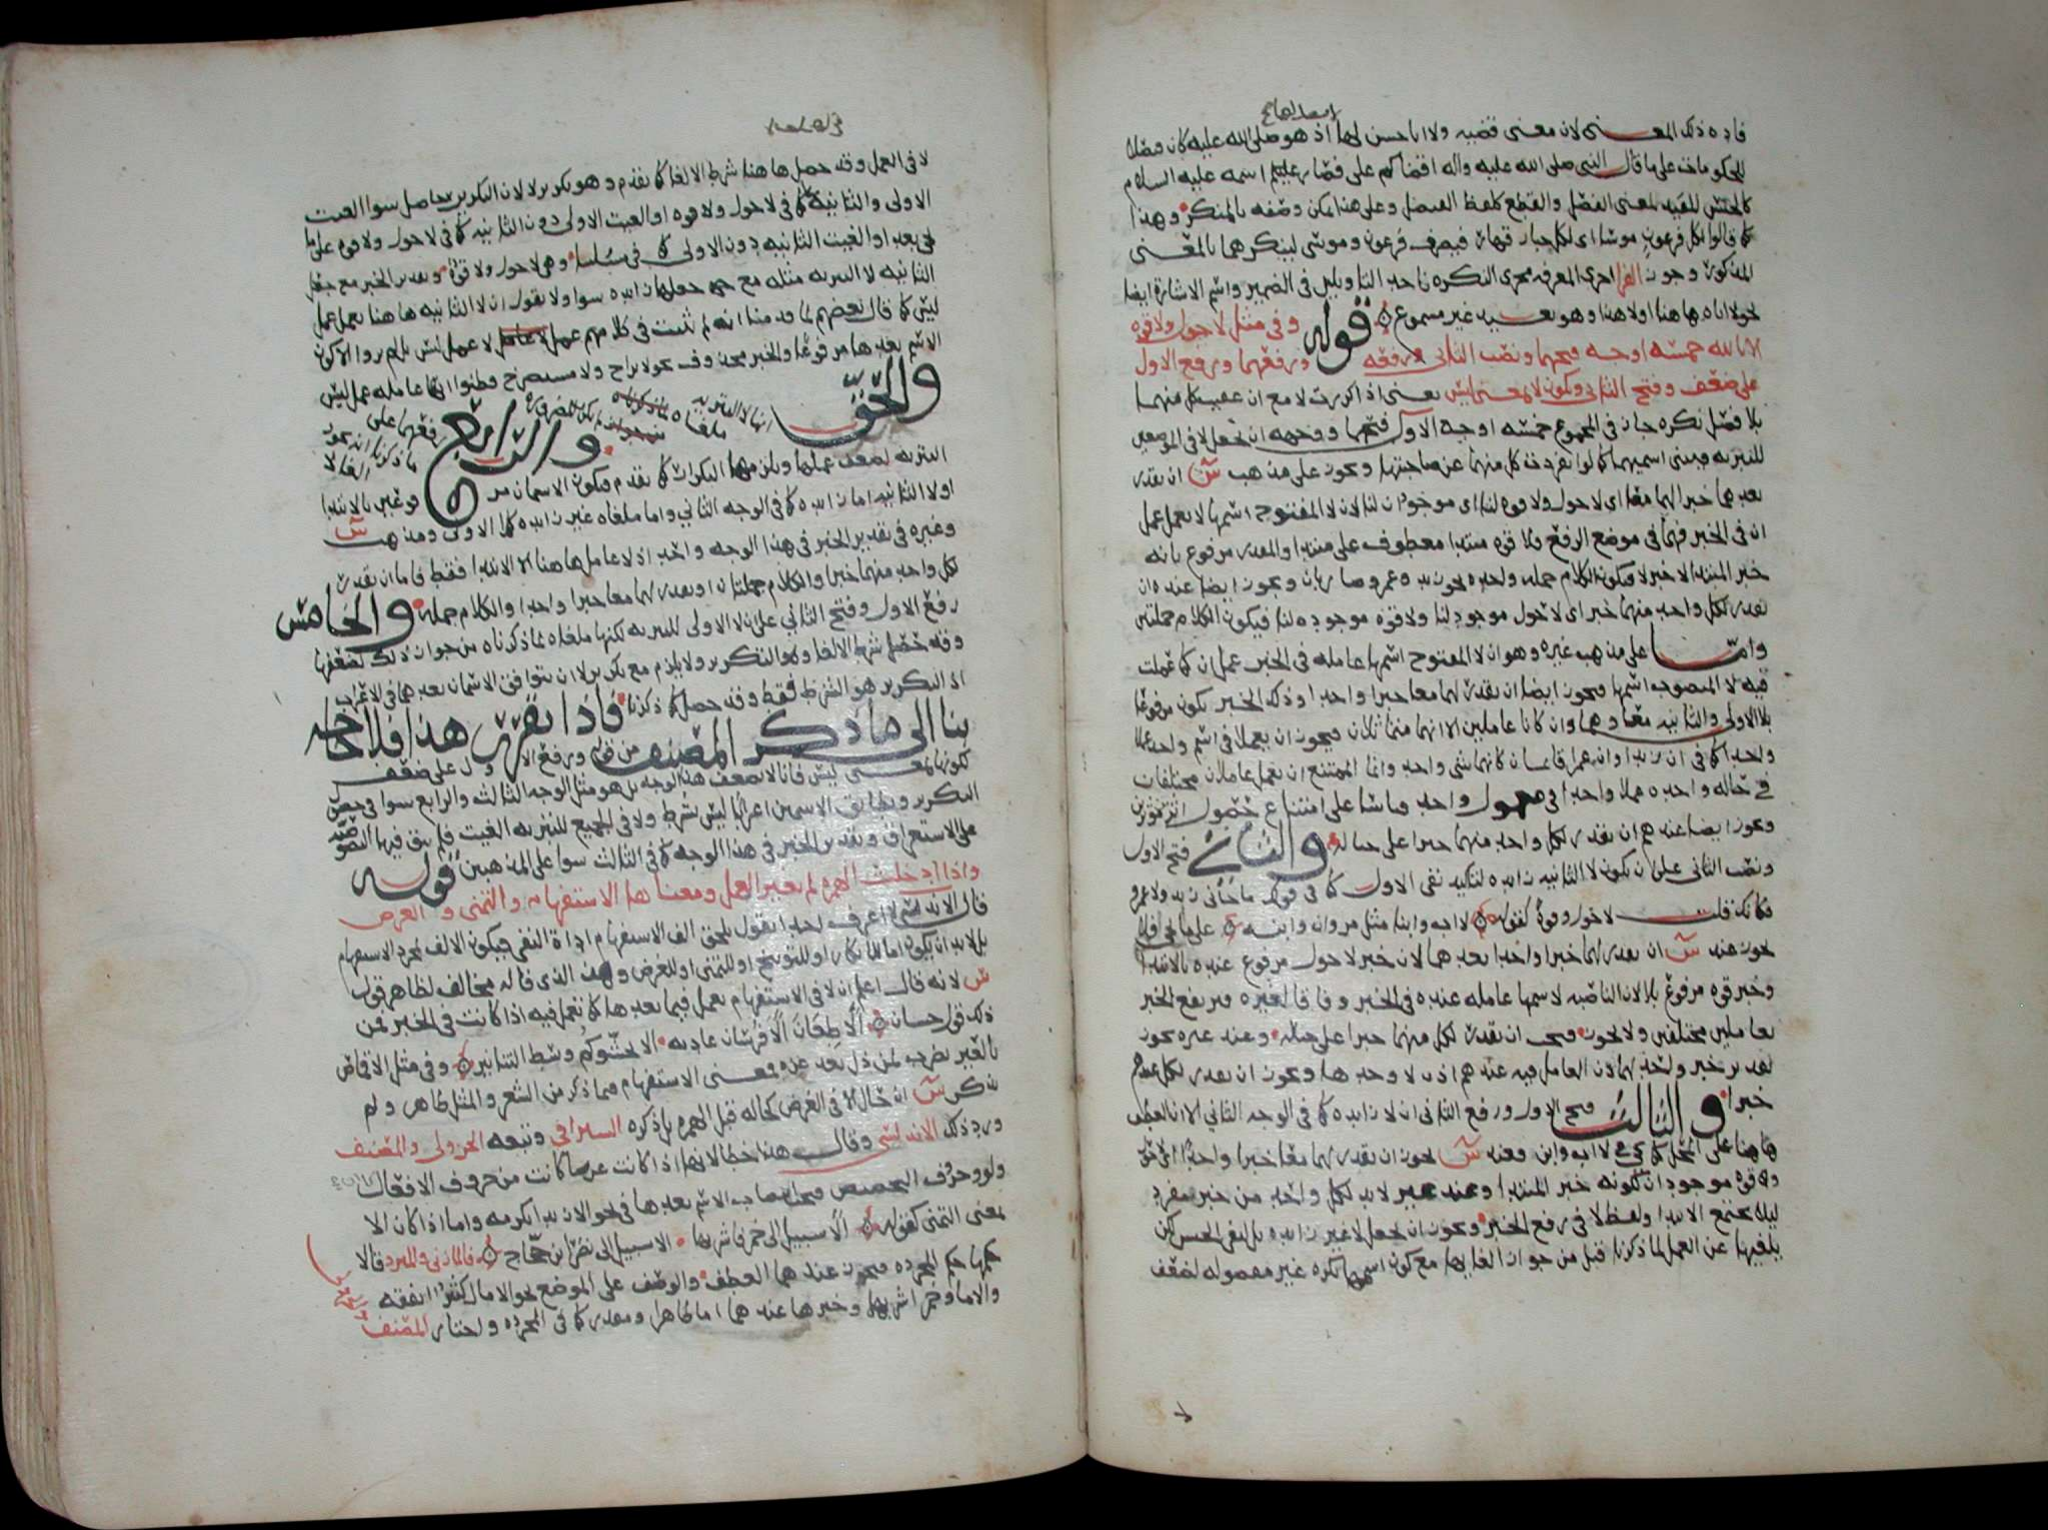 فاده ذلك المعنى لان معنى قضيه ولا ابا حسن لها اذ هو صلى الله عليه كان فصلا
للحكومات على ما قال النبى صلى الله عليه واله اقضاكم على فصار عليتم اسمه عليه السلام
كالجنس المفيد لمعنى الفصل والقطع كلفظ الفيصل وعلى هذا يمكن وصفه بالمنكر وهذا
كما قالوا لكل فرعون موسا اى لكل جبار قهار فيصرف فرعون وموسى لتنكيرهما بالمعنى
المذكور وجوز الفرا اجرى المعرفه مجرى النكره باحد التاويلين فى الضمير واسم الاشارة ايضا
نحو لا اياه هاهنا او لا هذا وهو بعيد غير مسموع قوله وفى مثل لا حول ولا قوه
الا بالله خمسه اوجه فتحهما ونصب الثانى ورفعه ورفعهما ورفع الاول
على ضعف وفتح الثانى ويكون لا بمعنى ليس يعنى اذا كررت لا مع ان عقيب كل منهما
بلا فصل نكره جاز فى المجموع خمسه اوجه الاول فتحهما ووجهه ان تجعل لا فى الموضعين
للتبريه فيبنى اسميهما كما لو انفردت كل منهما عن صاحبتها ويجوز على مذهب س ان يقدر
بعدهما خبر لهما معا اى لا حول ولا قوه لنا اى موجودان لنا لان لا المفتوح اسمها لا يعمل عمل
ان فى الخبر فهما فى موضع الرفع ولا قوه مبتدا معطوف على مبتدا والمقدر مرفوع بانه
خبر المبتدا لا خبر لا فيكون الكلام جمله واحده نحو زيد وعمرو ضاربان ويجوز ايضا عنده ان
يقدر لكل واحد منهما خبر اى لا حول موجود لنا ولا قوه موجوده لنا فيكون الكلام جملتين
واما على مذهب غيره وهو ان لا المفتوح اسمها عامله فى الخبر عمل ان كما عملت
فيه لا المنصوب اسمها فيجوز ايضا ان يقدر لهما معا خبرا واحدا وذلك الخبر يكون مرفوعا
بلا الاولى والثانيه معا وهما وان كانا عاملين الا انهما متماثلان فيجوز ان يعملا فى اسم واحد عملا
واحدا كما فى ان زيدا وان عمرا قائمان كانهما شى واحد وانما الممتنع ان يعمل عاملان مختلفان
فى حاله واحده عملا واحدا فى معمول واحد قياسا على امتناع حصول اثر من موثرين
ويجوز ايضا عندهم ان يقدر لكل واحد منهما خبرا على حياله والثانى فتح الاول
ونصب الثانى على ان يكون لا الثانيه زايده لتاكيد نفى الاول كما فى قولك ما جانى زيد ولا عمرو
فكانك قلت لا حول وقوة كقوله لا اب وابنا مثل مروان وابنه
يجوز عند س ان يقدر لهما خبرا واحدا بعدهما لان خبر لا حول مرفوع عنده بالابتدا
وخبر قوه مرفوع بلا لان الناصبه لاسمها عامله عنده فى الخبر وفاقا لغيره فيرتفع الخبر
بعاملين مختلفين ولا يجوز فيجب ان يقدر لكل منهما خبرا على حياله وعند غيره يجوز
تقدير خبر واحد لهما لان العامل فيه عندهم اذن لا وحدها ويجوز ان يقدر لكل منهما
خبرا والثالث فتح الاول ورفع الثانى ان لا زايده كما فى الوجه الثانى الا ان العطف
هاهنا على المحل كما فى لا اب وابن فعند س يجوز ان يقدر لهما معا خبرا واحدا
قوه موجودان لكونه خبر المبتدا وعند غيره لابد لكل واحد من خبر مفرد
ليلا يجتمع الابتدا ولفظ لا فى رفع الخبر ويجوز ان تجعل لا غير زايده بل لنفى الجنس لكن
يلغيها عن العمل لما ذكرنا قبل من جواز الغايها مع كون اسمها نكره غير مفصوله لضعف
لا فى العمل وقد حصل هاهنا شرط الالغا كما تقدم وهو تكرير لا لان التكرير حاصل سوا الغيت
الاولى والثانيه كما فى لا حول ولا قوه او الغيت الاولى دون الثانيه كما فى لا حول ولا قوه على ما
يجى بعد او الغيت الثانيه دون الاولى كما فى مسلتنا وهى لا حول ولا قوة وتقدير الخبر مع جعل
الثانيه لا التبريه مثله مع جعلها زايده سوا ولا نقول ان لا الثانيه هاهنا تعمل عمل
ليس كما قال بعضهم لما قدمنا انه لم يثبت فى كلامهم عمل لا عمل ليس بل لم يروا الا كون
الاسم بعدها مرفوعا والخبر محذوف نحو لا براح ولا مستصرخ فظنوا انها عامله عمل ليس
والحق انها لا التبريه ملغاه
والرابع رفعهما على ما ذكرنا انه يجوز الغا لا
التبريه لضعف عملها ويلزمها التكرار كما تقدم فيكون الاسمان مرفوعين بالابتدا
ولا الثانيه اما زايده كما فى الوجه الثانى واما ملغاه غير زايده كما الاولى ومذهب س
وغيره فى تقدير الخبر فى هذا الوجه واحد اذ لا عامل هاهنا الا الابتدا فقط فاما ان يقدر
لكل واحد منهما خبرا والكلام جملتان او يقدر لهما معا خبرا واحدا والكلام جمله والخامس
رفع الاول وفتح الثانى على ان لا الاولى للتبريه لكنها ملغاه لما ذكرناه من جواز ذلك لضعفها
وقد حصل شرط الالغا وهو التكرير ولا يلزم مع تكرير لا ان يتوافق الاسمان بعدهما فى الاعراب
اذ التكرير هو الشرط فقط وقد حصل كما ذكرنا فاذا تقرر هذا فلا حاجه
بنا الى ما ذكر المصنف من قوله ورفع الاول على ضعف
لكونها بمعنى ليس فانا لا نضعف هذا الوجه بل هو مثل الوجه الثالث والرابع سوا فى حصول
التكرير وتطابق الاسمين اعرابا ليس بشرط ولا فى الجميع للتبريه الغيت فلم يبق فيها النصوصيه
على الاستغراق وتقدير الخبر فى هذا الوجه كما فى الثالث سوا على المذهبين قوله
واذا دخلت الهمزه لم يغير العمل ومعناها الاستفهام والتمنى والعرض
قال الاندلسى لا اعرف احدا يقول يلحق الف الاستفهام اداة النفى فيكون الالف لمجرد الاستفهام
بل لابد ان يكون اما للانكار او للتوبيخ او للتمنى او للعرض وهذا الذى قاله مخالف لظاهر قول
س لانه قال اعلم ان لا فى الاستفهام تعمل فيما بعدها كما تعمل فيه اذا كانت فى الخبر فمن
ذلك قول حسان الا طعان الا فرسان عاديه الا تجشوكم وسط التنانير وفى مثل الا قماص
بالعير يضرب لمن ذل بعد عزه فمعنى الاستفهام فيما ذكر من الشعر والمثل ظاهر ولم
يذكر س ان حال الا فى العرض كحاله قبل الهمزه بل ذكره السيرافى وتبعه الجزولى والمصنف
ورد ذلك الاندلسى وقال هذا خطا لانها اذا كانت عرضا كانت من حروف الافعال
ولو وحروف التحضيض فيجب انتصاب الاسم بعدها فى نحو الا زيدا تكرمه واما اذا كان الا
لمعنى التمنى كقوله الا سبيل الى خمر فاشربها الا سبيل الى نصر ابن حجاج فالمازنى والمبرد قالا
حكمها حكم المجرده فيجوز عندهما العطف والوصف على الموضع نحو الا مال كثير انفقه
والا ما وخمر اشربها وخبرها عندهما اما ظاهرا ومقدر كما فى المجرده واختار المصنف